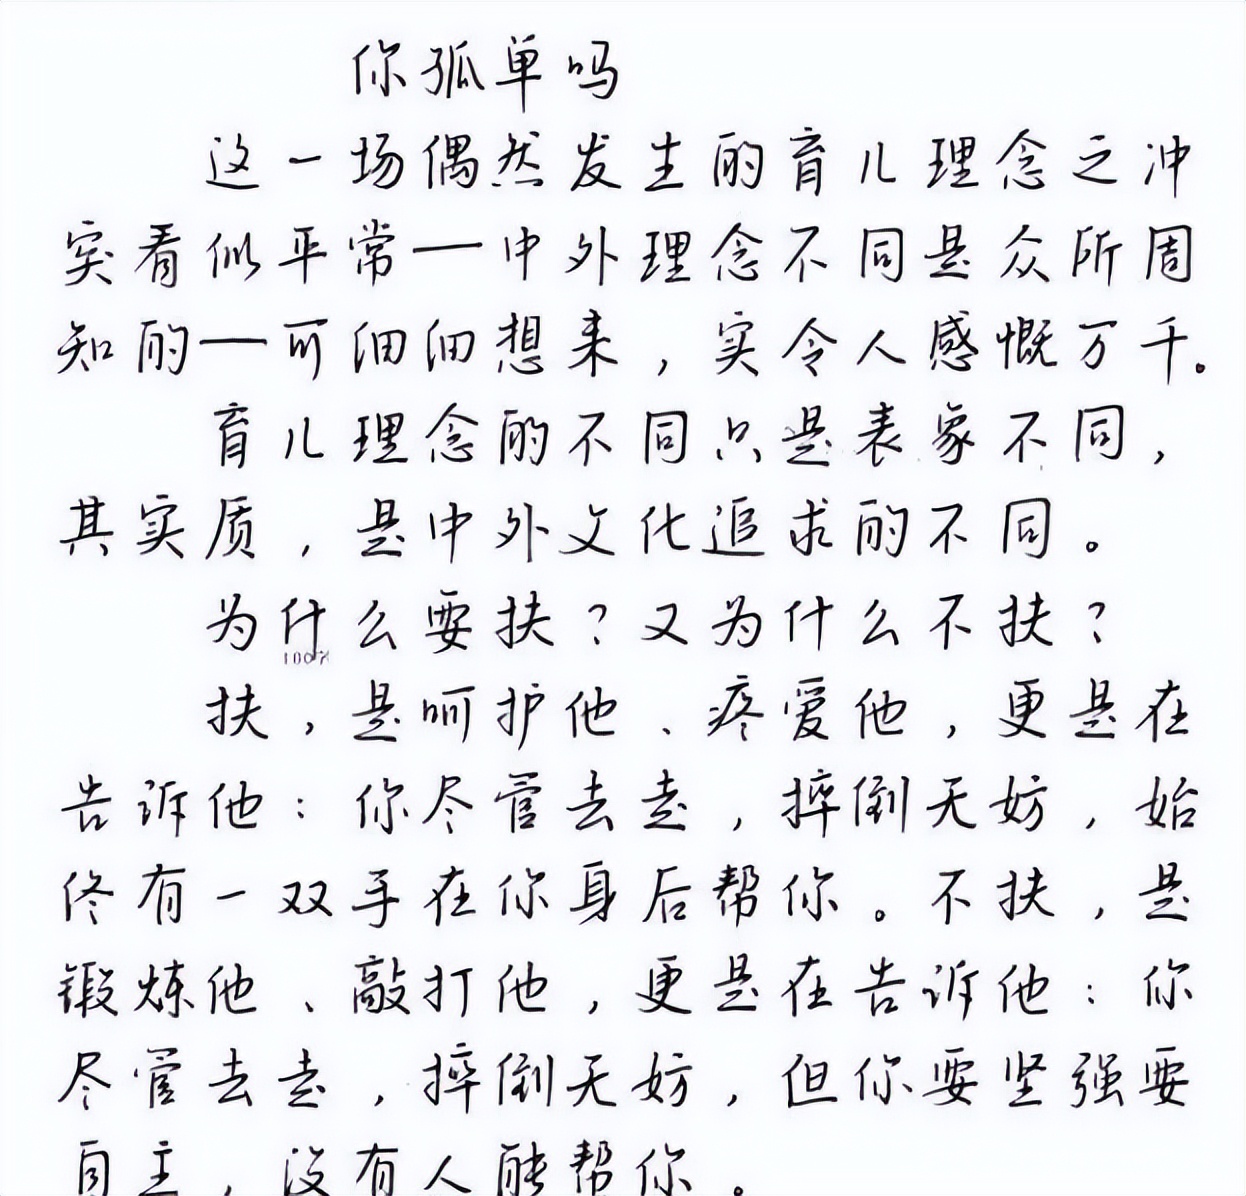 你孤单吗
这一场偶然发生的育儿理念之冲
突看似平常——中外理念不同是众所周
知的——可细细想来，实令人感慨万千。
育儿理念的不同只是表象不同，
其实质，是中外文化追求的不同。
为什么要扶？又为什么不扶？
100%
扶，是呵护他、疼爱他，更是在
告诉他：你尽管去走，摔倒无妨，始
终有一双手在你身后帮你。不扶，是
锻炼他、敲打他，更是在告诉他：你
尽管去走，摔倒无妨，但你要坚强要
自主，没有人能帮你。